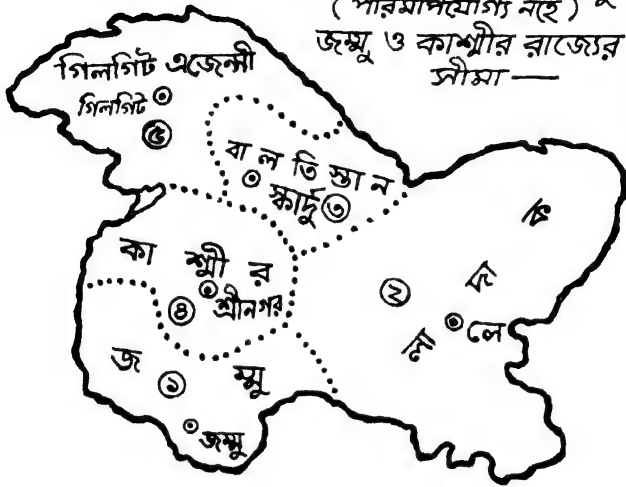 ( পরিমাপযোগ্য নহে )
জম্মু ও কাশ্মীর রাজ্যের
সীমা —
গিলগিট এজেন্সী
গিলগিট
৫
বালতিস্তান
স্কার্দু ৩
কাশ্মীর
শ্রীনগর
৪
লাদাক
২
লে
জম্মু
১
জম্মু